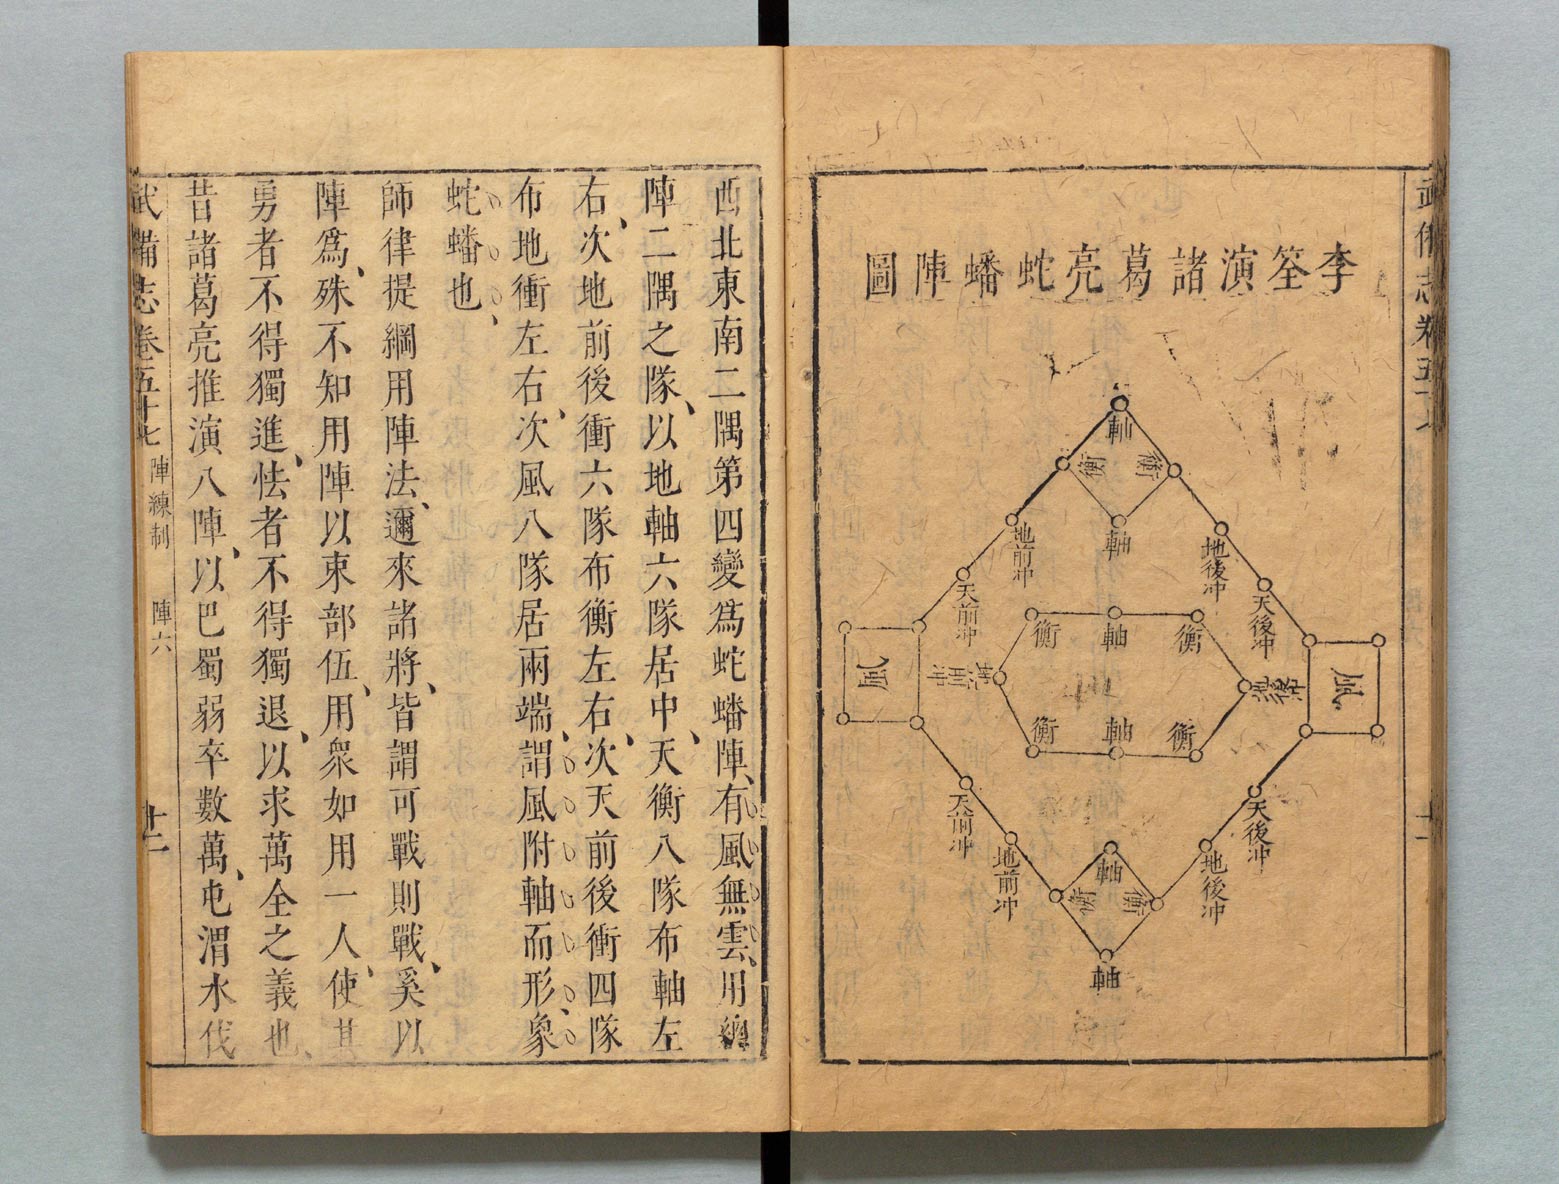 李筌演諸葛亮蛇蟠陣圖
軸
衡
衡
軸
地前冲
地後冲
天前冲
天後冲
衡
軸
衡
風
風
衡
軸
衡
天前冲
天後冲
地前冲
地後冲
軸
衡
衡
軸
西北東南二隅第四變爲蛇蟠陣有風無雲用
陣二隅之隊以地軸六隊居中天衡八隊布軸左
右次地前後衝六隊布衡左右次天前後衝四隊
布地衝左右次風八隊居兩端謂風附軸而形象
蛇蟠也
師律提綱用陣法邇來諸將皆謂可戰則戰奚以
陣爲殊不知用陣以束部伍用衆如用一人使其
勇者不得獨進怯者不得獨退以求萬全之義也
昔諸葛亮推演八陣以巴蜀弱卒數萬屯渭水伐
武備志卷五十七 陣練制 陣六 十二